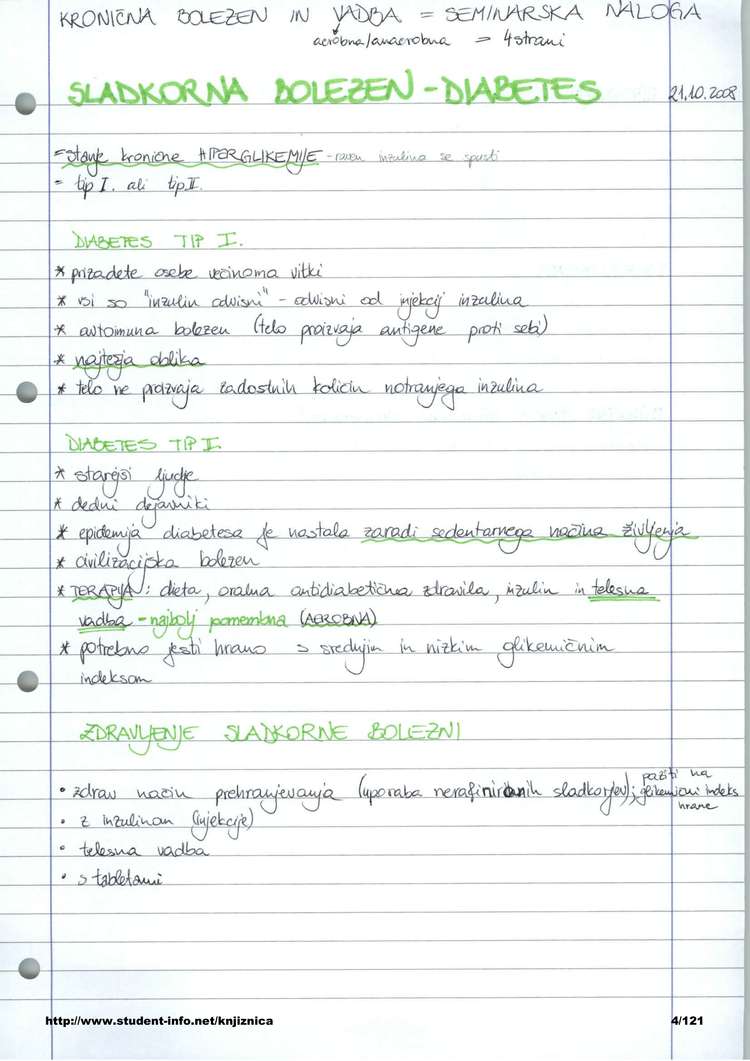 KRONIČNA BOLEZEN IN VADBA = SEMINARSKA NALOGA
aerobna/anaerobna => 4 strani
SLADKORNA BOLEZEN - DIABETES 21.10.2008
= stanje kronične HIPERGLIKEMIJE - raven inzulina se spusti
= tip I. ali tip II.
DIABETES TIP I.
* prizadete osebe večinoma vitki
* vsi so "inzulin odvisni" - odvisni od injekcij inzulina
* avtoimuna bolezen (telo proizvaja antigene proti sebi)
* najtežja oblika
* telo ne proizvaja zadostnih količin notranjega inzulina
DIABETES TIP II.
* starejši ljudje
* dedni dejavniki
* epidemija diabetesa je nastala zaradi sedentarnega načina življenja
* civilizacijska bolezen
* TERAPIJA: dieta, oralna antidiabetična zdravila, inzulin in telesna
vadba - najbolj pomembna (AEROBNA)
* potrebno jesti hrano s srednjim in nizkim glikemičnim
indeksom
ZDRAVLJENJE SLADKORNE BOLEZNI
• zdrav način prehranjevanja (uporaba nerafiniranih sladkorjev); paziti na glikemični indeks hrane
• z inzulinom (injekcije)
• telesna vadba
• s tabletami
http://www.student-info.net/knjiznica 4/121